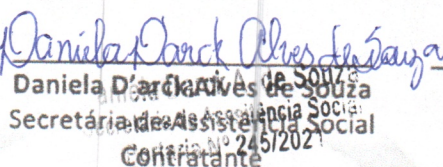 Daniela Darck Alves de Souza
Daniela D'arck Alves de Souza
Secretária de Assistência Social
Contratante
Nº 245/2021